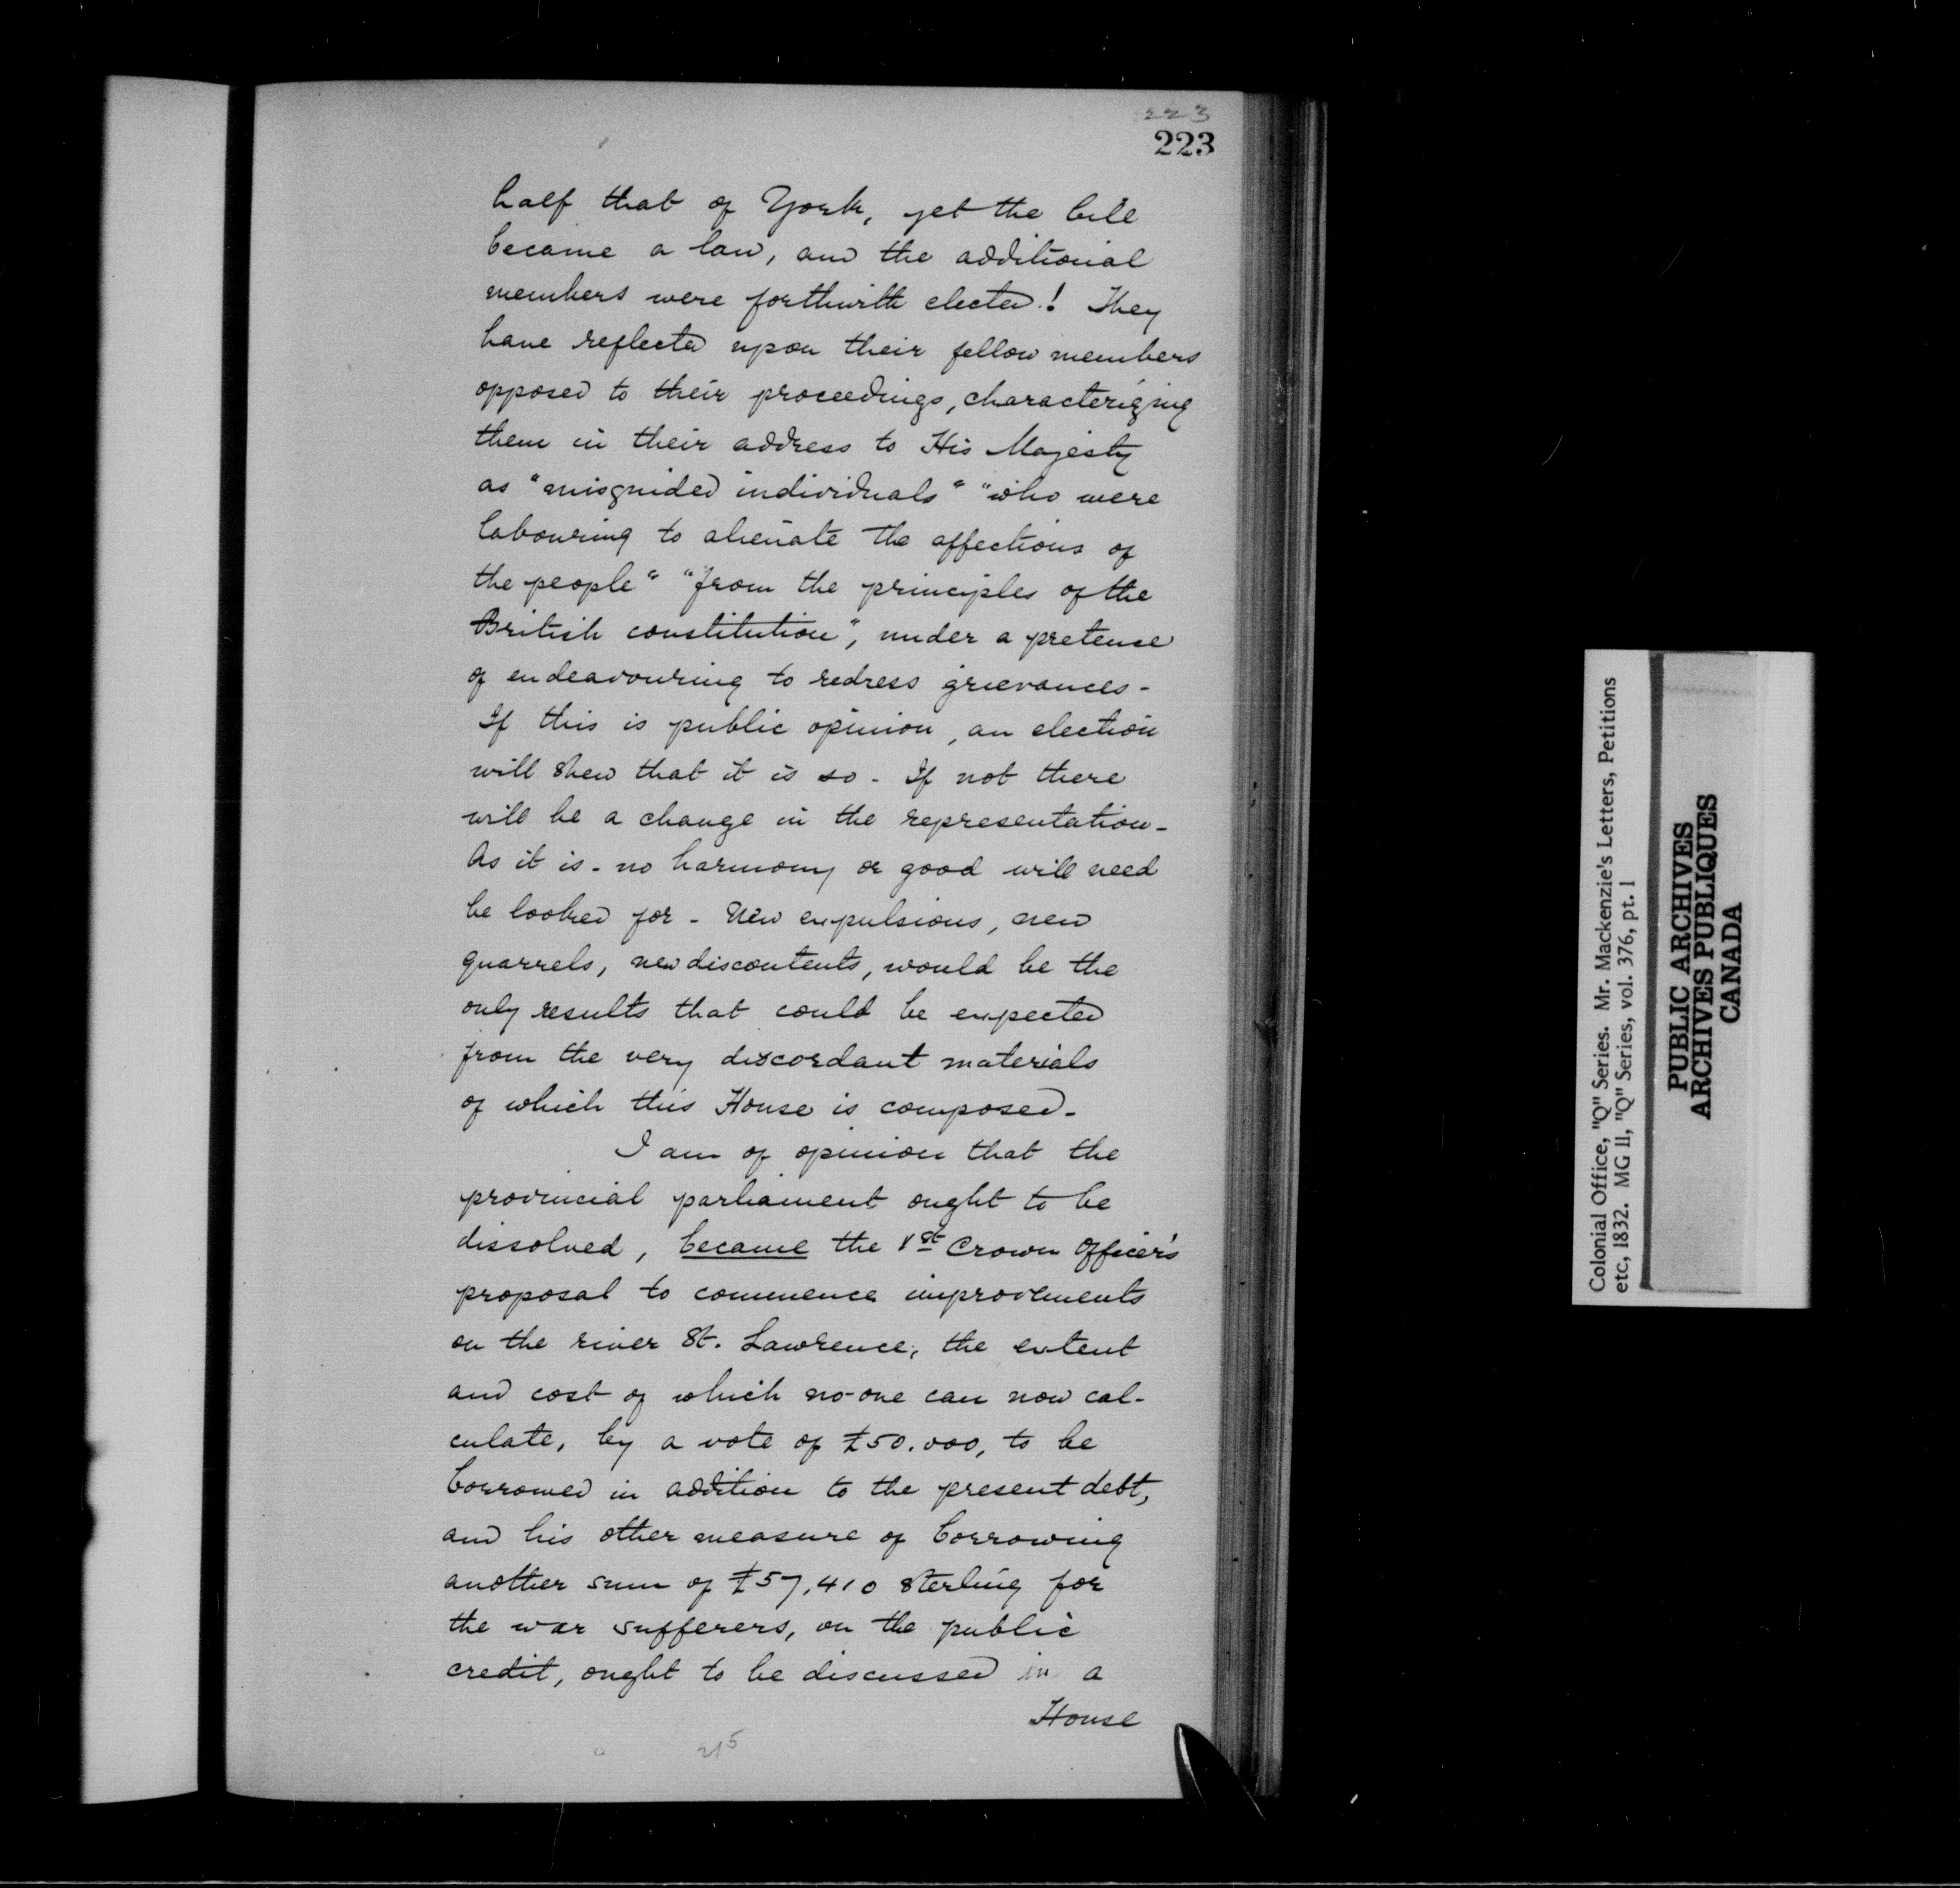 223
223
half that of York, yet the bill
became a law, and the additional
members were forthwith elected! They
have reflected upon their fellow members
opposed to their proceedings, characterizing
them in their address to His Majesty
as "misguided individuals" "who were
labouring to alienate the affections of
the people" "from the principles of the
British constitution", under a pretense
of endeavouring to redress grievances -
If this is public opinion, an election
will shew that it is so - If not there
will be a change in the representation -
As it is - no harmony or good will need
be looked for - New expulsions, new
quarrels, new discontents, would be the
only results that could be expected
from the very discordant materials
of which this House is composed -
I am of opinion that the
provincial parliament ought to be
dissolved, became the 1st Crown Officer's
proposal to commence improvements
on the river St. Lawrence, the extent
and cost of which no-one can now cal-
culate, by a vote of £50.000, to be
borrowed in addition to the present debt,
and his other measure of borrowing
another sum of £57,410 sterling for
the war sufferers, on the public
credit, ought to be discussed in a
House
215
Colonial Office, "Q" Series. Mr. Mackenzie's Letters, Petitions
etc, 1832. MG 11, "Q" Series, vol. 376, pt. 1
PUBLIC ARCHIVES
ARCHIVES PUBLIQUES
CANADA